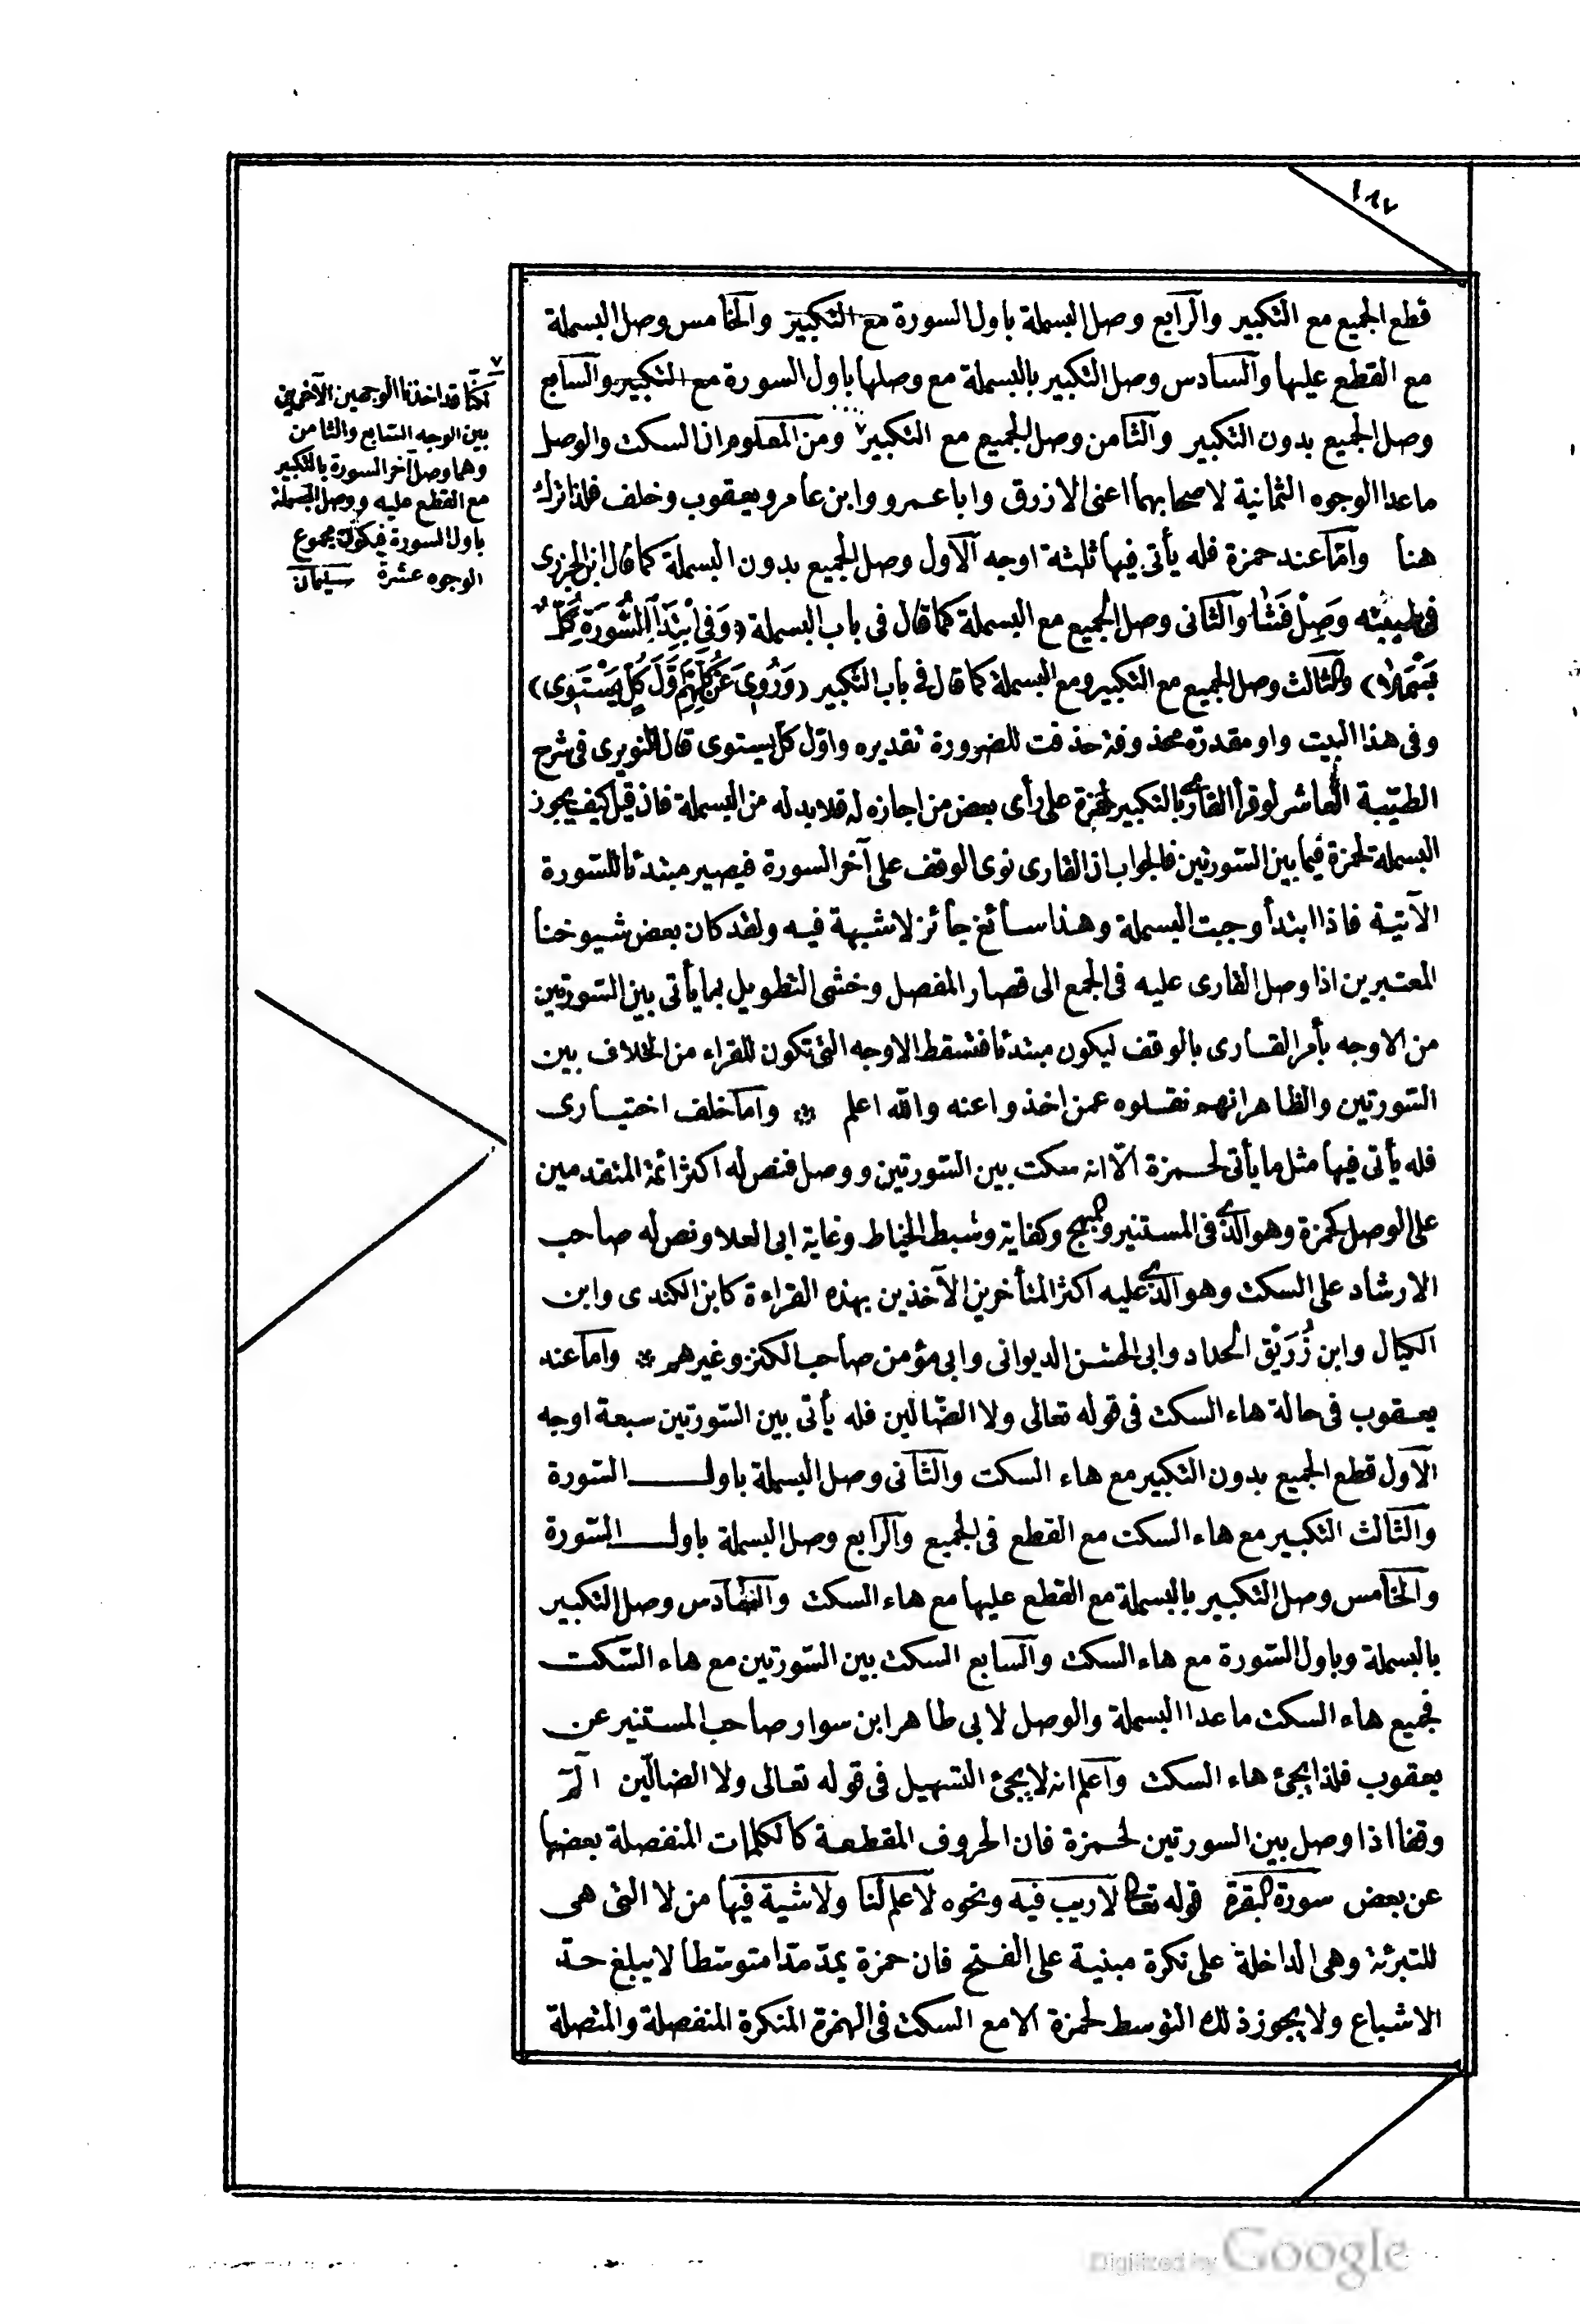 ١٨٧
قطع الجميع مع التكبير والرابع وصل البسملة باول السورة مع التكبير والخامس وصل البسملة
مع القطع عليها والسادس وصل التكبير بالبسملة مع وصلها باول السورة مع التكبير والسابع
وصل الجميع بدون التكبير والثامن وصل الجميع مع التكبير ٧ ومن المعلوم ان السكت والوصل
ماعدا الوجوه الثمانية لاصحابهما اعنى الازرق وابا عمرو وابن عامر ويعقوب وخلف فلذا ترك
هنا واما عند حمزة فله يأتى فيها ثلثة اوجه الاول وصل الجميع بدون البسملة كما قال ابن الجزرى
فى طيبته وَصِلْ فَشَا والثانى وصل الجميع مع البسملة كما قال فى باب البسملة (وَفِى ابْتِدَا السُّورَةِ كُلٌّ
بَسْمَلَا) والثالث وصل الجميع مع التكبير ومع البسملة كما قال فى باب التكبير (وَرُوِىَ عَنْ كُلِّهِمْ اَوَّلَ كُلٍّ يَسْتَوِى)
وفى هذا البيت واو مقدرة محذوفة حذفت للضرورة تقديره واوّل كل يستوى قال النويرى فى شرح
الطيّبة العاشر لو قرأ القارئ بالتكبير لحمزة على رأى بعض من اجازه له فلا بد له من البسملة فان قيل كيف يجوز
البسملة لحمزة فيما بين السورتين فالجواب ان القارى نوى الوقف على آخر السورة فيصير مبتدئا للسورة
الآتية فاذا ابتدأ وجبت البسملة وهذا سائغ جائز لا شبهة فيه ولقد كان بعض شيوخنا
المعتبرين اذا وصل القارى عليه فى الجمع الى قصار المفصل وخشى التطويل بما يأتى بين السورتين
من الاوجه يأمر القارى بالوقف ليكون مبتدئا فتسقط الاوجه التى تكون للقراء من الخلاف بين
السورتين والظاهر انهم نقلوه عمن اخذوا عنه والله اعلم ۞ واما خلف اختيارى
فله يأتى فيها مثل ما يأتى لحمزة الّا انه سكت بين السورتين ووصل فنص له اكثر ائمة المتقدمين
على الوصل كحمزة وهو الذى فى المستنير والمبهج وكفاية وسبط الخياط وغاية ابى العلا ونص له صاحب
الارشاد على السكت وهو الذى عليه اكثر المتأخرين الآخذين بهذه القراءة كابن الكندى وابن
الكيال وابن زُرَيْق الحداد وابى الحسن الديوانى وابى مؤمن صاحب الكنز وغيرهم ۞ واما عند
يعقوب فى حالة هاء السكت فى قوله تعالى ولا الضّالين فله يأتى بين السّورتين سبعة اوجه
الاول قطع الجميع بدون التكبير مع هاء السكت والثانى وصل البسملة باول السّورة
والثالث التكبير مع هاء السكت مع القطع فى الجميع والرابع وصل البسملة باول السّورة
والخامس وصل التكبير بالبسملة مع القطع عليها مع هاء السكت والسّادس وصل التكبير
بالبسملة وباول السّورة مع هاء السكت والسابع السكت بين السّورتين مع هاء السّكت
فجميع هاء السكت ماعدا البسملة والوصل لابى طاهر ابن سوار صاحب المستنير عن
يعقوب فلذا يجئ هاء السكت واعلم انه لا يجئ التسهيل فى قوله تعالى ولا الضالّين الٓمّ
وقفا اذا وصل بين السورتين لحمزة فان الحروف المقطعة كالكلمات المنفصلة بعضها
عن بعض سورة البقرة قوله تعالى لا ريب فيه ونحوه لا علم لنا ولا شية فيها من لا التى هى
للتبرئة وهى الداخلة على نكرة مبنية على الفتح فان حمزة يمدّ مدّا متوسّطا لا يبلغ حدّ
الاشباع ولا يجوز ذلك التوسط لحمزة الا مع السكت فى الهمزة المنكرة المنفصلة والمتصلة
٧
لكنّا قد اخذنا الوجهين الآخرين
بين الوجه السّابع والثامن
وهما وصل آخر السورة بالتكبير
مع القطع عليه ووصل البسملة
باول السورة فيكون مجموع
الوجوه عشرة سليمان
Digitized by Google